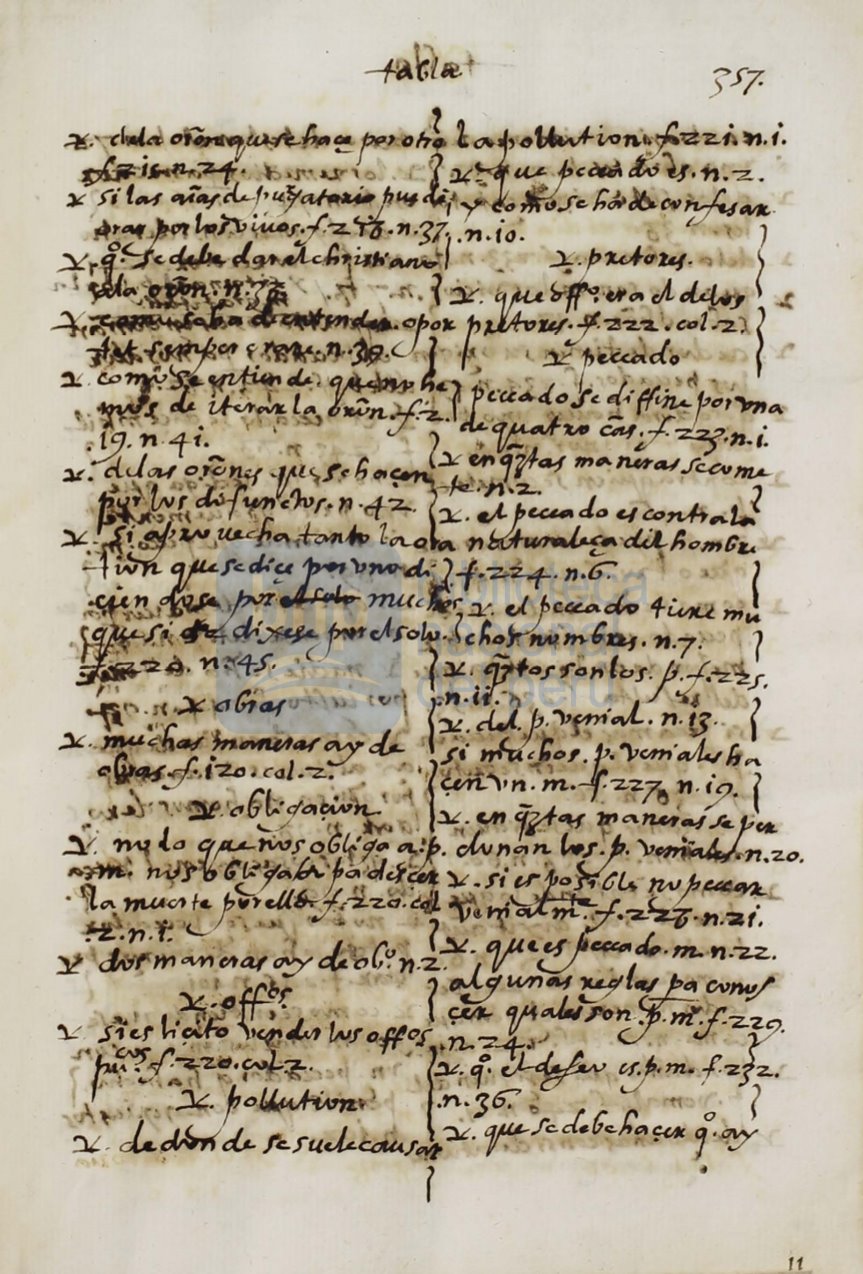 tabla
357.
V. dela orõn que se haçe por otro
f.215.n.24.
V. si las aĩas de purgatorio puedẽ
orar por los vivos. f.218.n.37.
V. qº. se debe dar el christiano
ala orõn. n.38
V.
semper orare. n.39.
V. como se entiende que no he
mos de iterar la orõn. f.2
19. n. 41.
V. delas orõnes que se haçen
por los defunctos. n. 42.
V. si aprovecha tanto la ora
tion que se diçe por uno di
çiendose por muchos
que si se dixese por el solo.
f.220. n. 45.
V. obras
V. muchas maneras ay de
obras. f.120. col. 2.
V. obligaçion
V. no lo que nos obliga a .p.
m. nos obliga a padescer
la muerte por ello. f.220. col
2. n. 1.
V. dos maneras ay de obº. n.2
V. offºs
V. si es licito vender los offºs
pucos. f.220. col 2.
V. pollution.
V. de donde se suele causar
la pollution. f.221. n. 1.
V. que peccado es. n. 2.
y como se hâ de confesar
.n. 10.
V. pretores.
V. que offº. era el delos
pretores. f.222. col. 2.
V. peccado
peccado se diffine por una
de quatro cãs. f.223. n. 1.
V. en qz̃tas maneras se come
te. n. 2.
V. el peccado es contra la
naturaleça del hombre
f.224. n. 6.
V. el peccado tiene mu
chos nombres. n. 7.
V. qz̃tos son los .p. f.225.
.n. 11.
V. del .p. venial. n. 13.
si muchos .p. veniales ha
çen un .m. f.227. n. 19.
V. en qz̃tas maneras se per
donan los .p. veniales. n. 20.
V. si es posible no peccar
venialmte. f.228. n. 21.
V. que es peccado .m. n. 22.
algunas reglas pa conos
çer quales son .p. m. f.229.
.n. 24.
V. qº. el deseo es .p. m. f.232.
.n. 36.
V. que se debe haçer qº. ay
11